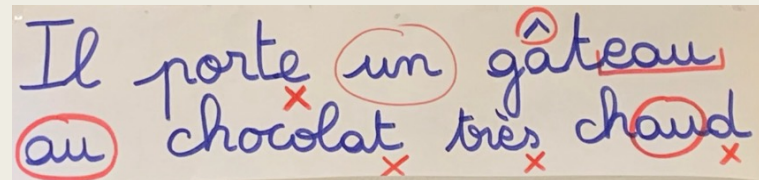 Il porte un gâteau
au chocolat très chaud